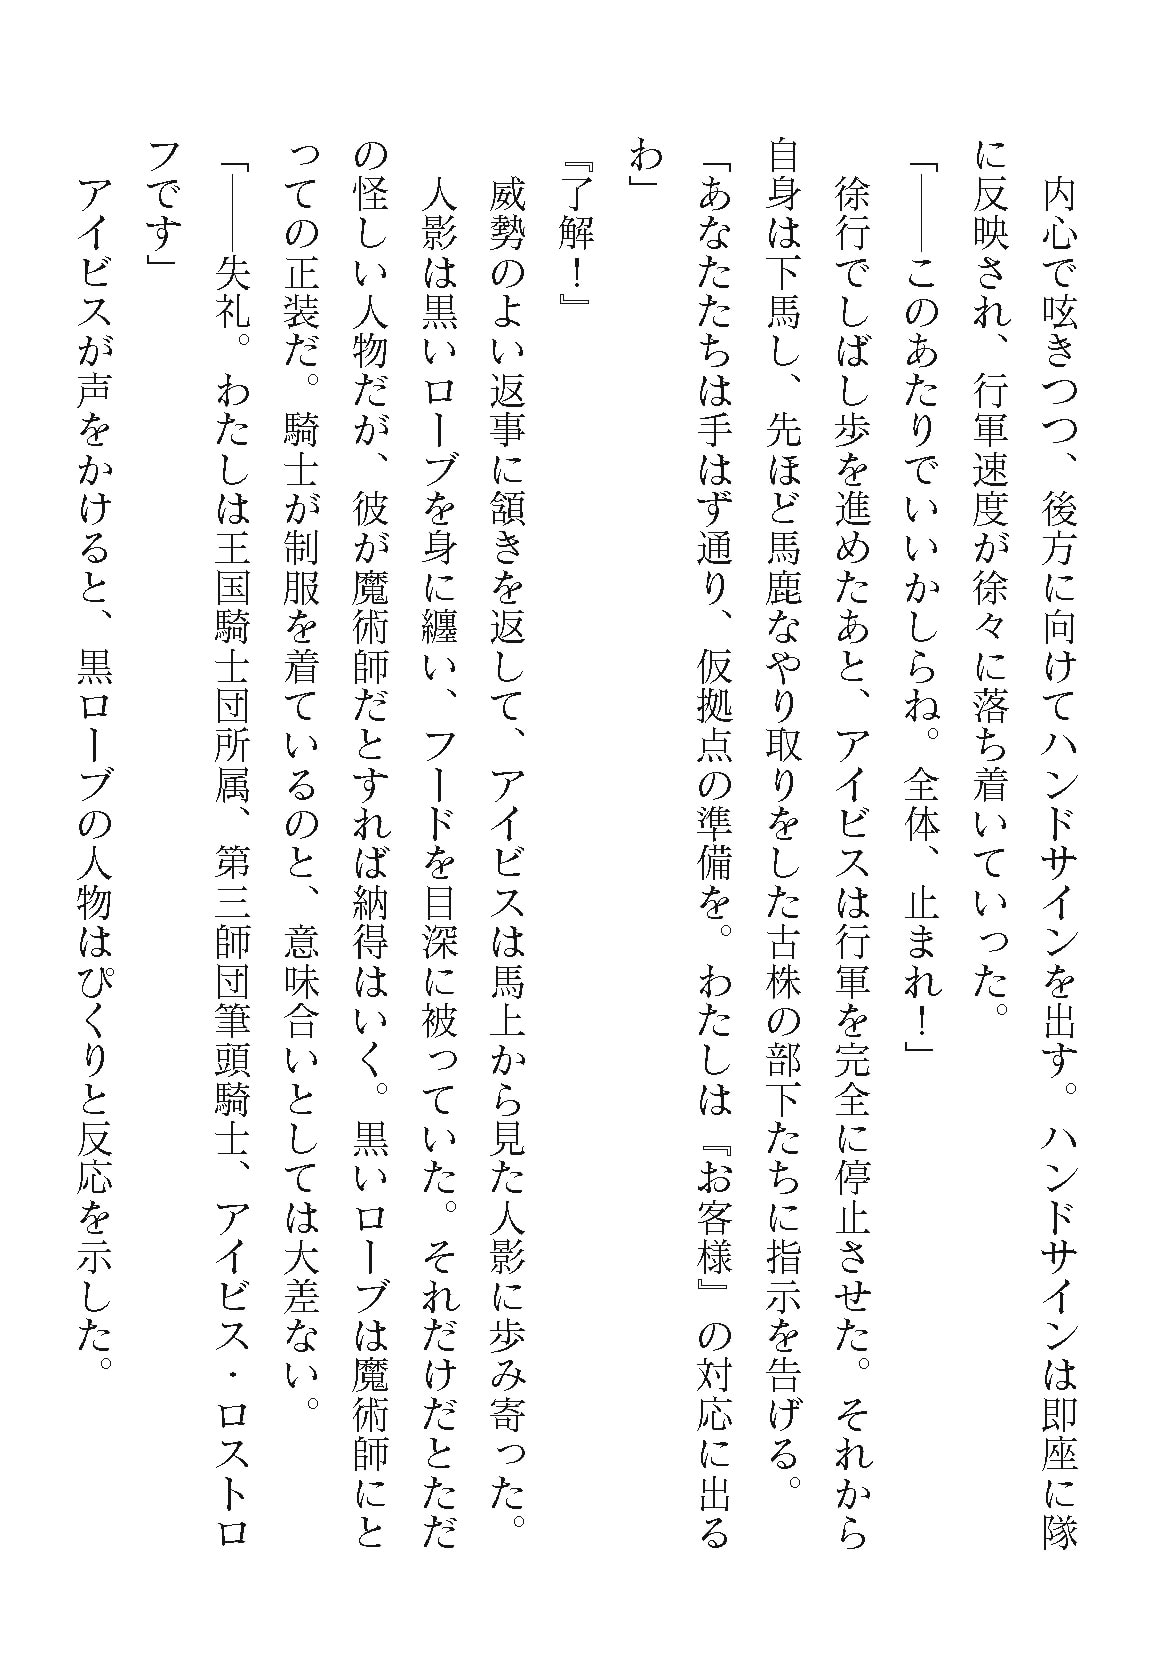 内心で呟きつつ、後方に向けてハンドサインを出す。ハンドサインは即座に隊
に反映され、行軍速度が徐々に落ち着いていった。
「――このあたりでいいかしらね。全体、止まれ！」
　徐行でしばし歩を進めたあと、アイビスは行軍を完全に停止させた。それから
自身は下馬し、先ほど馬鹿なやり取りをした古株の部下たちに指示を告げる。
「あなたたちは手はず通り、仮拠点の準備を。わたしは『お客様』の対応に出る
わ」
『了解！』
　威勢のよい返事に頷きを返して、アイビスは馬上から見た人影に歩み寄った。
　人影は黒いローブを身に纏い、フードを目深に被っていた。それだけだとただ
の怪しい人物だが、彼が魔術師だとすれば納得はいく。黒いローブは魔術師にと
っての正装だ。騎士が制服を着ているのと、意味合いとしては大差ない。
「――失礼。わたしは王国騎士団所属、第三師団筆頭騎士、アイビス・ロストロ
フです」
　アイビスが声をかけると、黒ローブの人物はぴくりと反応を示した。